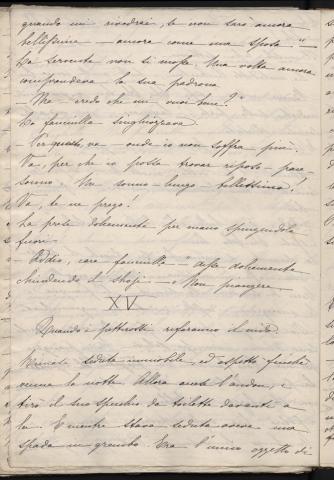 quando mi rivedrai, te non sarò ancora
bellissima — ancora come una sposa" —
La servente non si mosse. Una volta ancora
comprendeva la sua padrona
— Ma — credo che mi vuoi bene?"
La fanciulla singhiozzava.
— Per questo, va — onde io non soffra più.
Va, per che io posta trovar riposto — pare-
Un sonno lungo — bellissimo!
Va, te ne prego!
La prese dolcemente per mano spingendola
fuori —
— Addio, cara fanciulla" — disse dolcemente
chiudendo il shoji — Non piangere
XV
Quando i pettirossi rifaranno il nido.
Rimase seduta immobile, ed aspettò finchè
venne la notte. Allora accese l'andon, e
tirò il suo specchio da toiletta davanti a
lei. E mentre stava seduta aveva una
spada in grembo. Era l'unico oggetto di